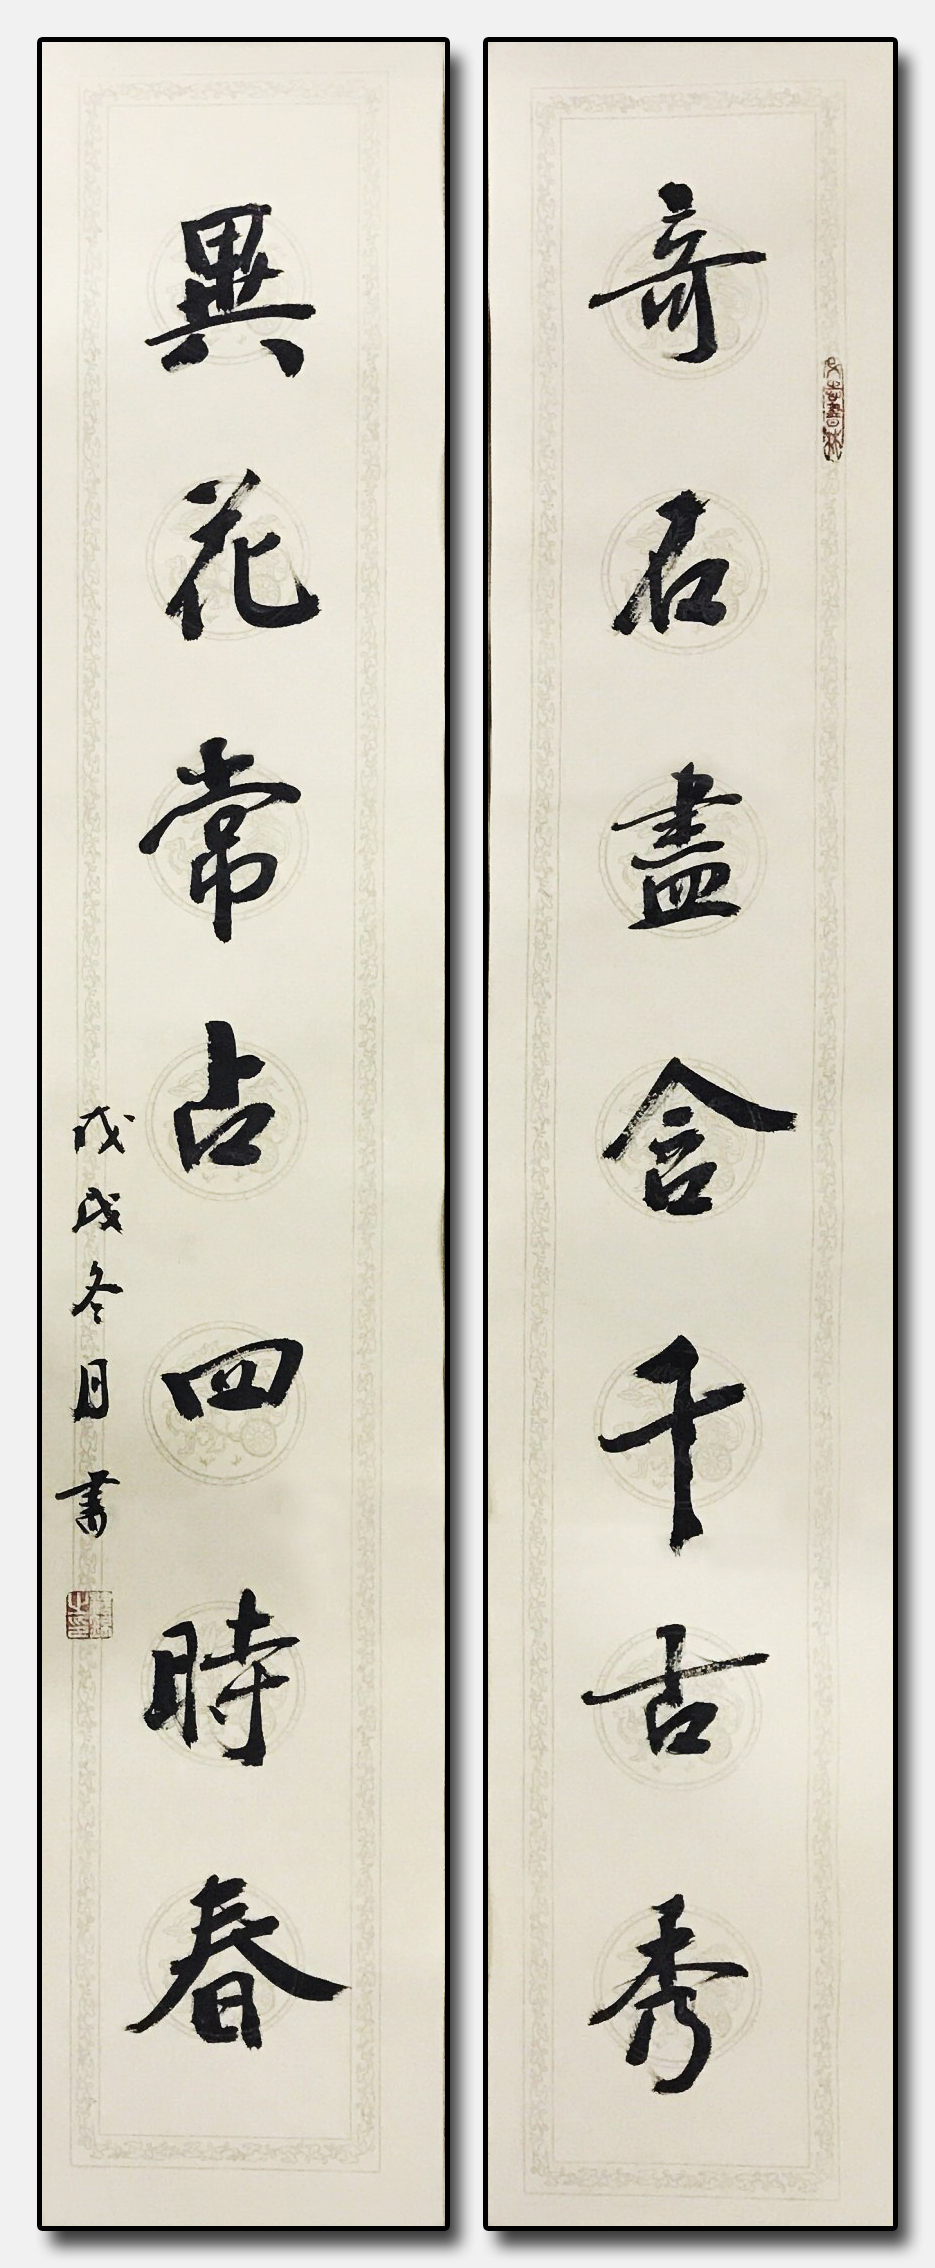 奇石盡含千古秀
異花常占四時春
戊戌冬月書